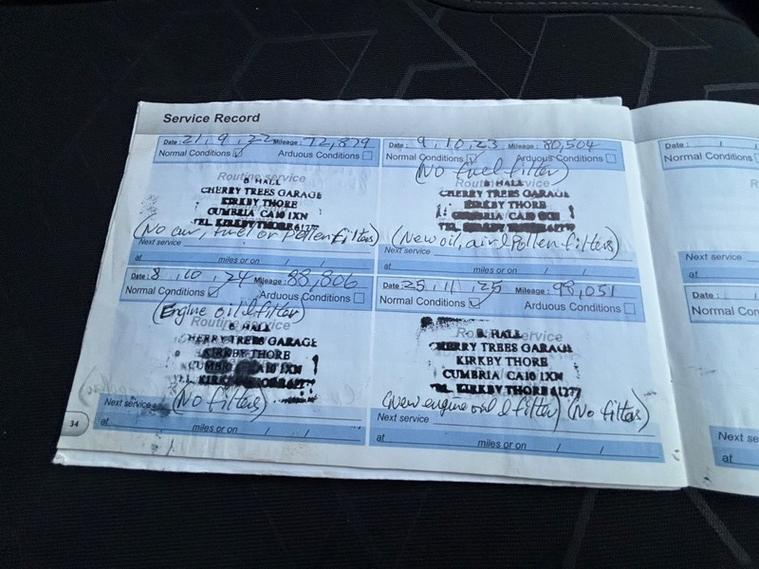 Service Record
Date: 21, 9, 22 Mileage: 72,879
Normal Conditions Arduous Conditions
Routine service
B HALL
CHERRY TREES GARAGE
KIRKBY THORE
CUMBRIA CA10 1XN
TEL. KIRKBY THORE 61277
(No air, fuel or pollen filters)
Next service
at miles or on / /
Date: 9, 10, 23 Mileage: 80,504
Normal Conditions Arduous Conditions
(No fuel filter)
Routine service
B HALL
CHERRY TREES GARAGE
KIRKBY THORE
CUMBRIA CA10 1XN
TEL. KIRKBY THORE 61277
(New oil, air & pollen filters)
Next service
at miles or on / /
Date: 8, 10, 24 Mileage: 88,806
Normal Conditions Arduous Conditions
(Engine oil & filter)
Routine service
B HALL
CHERRY TREES GARAGE
KIRKBY THORE
CUMBRIA CA10 1XN
TEL. KIRKBY THORE 61277
(No filters)
Next service
at miles or on / /
Date: 25, 11, 25 Mileage:
Normal Conditions Arduous Conditions
Routine service
B HALL
CHERRY TREES GARAGE
KIRKBY THORE
CUMBRIA CA10 1XN
TEL. KIRKBY THORE 61277
(New engine oil & filter) (No filters)
Next service
at miles or on / /
34
Date: / /
Normal Conditions
R
Next service
at
Date: /
Normal Con
Next se
at